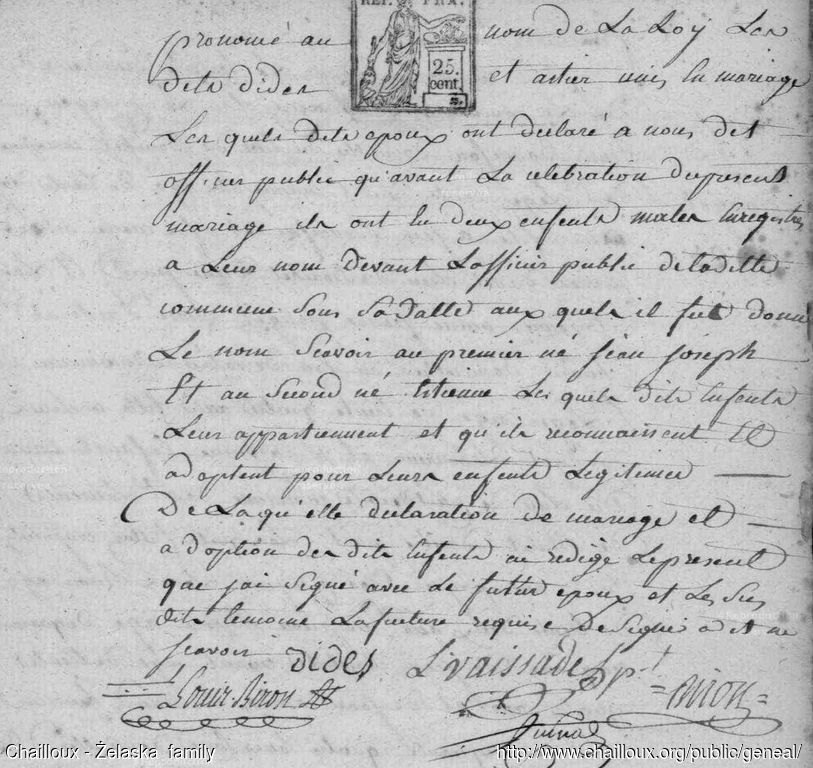 REP. FRA.
25.
cent.
pronomé au nom de La Loy Les
dits dides et astier unis en mariage
Les quels dits epoux ont declaré a nous dit
officier public qu'avant La celebration du present
mariage ils ont eu deux enfents males enregistres
a Leur nom devant L'officier public de ladite
commune sous sa datte aux quels il fut donné
Le nom scavoir au premier né jean joseph
Et au second né Estienne Les quels dits Enfents
Leur appartiennent et qu'ils reconnaissent Et
adoptent pour Leurs enfents Legitimes
De La qu'elle declaration de mariage et
adoption des dits Enfents ai redigé Le present
que jai signé avec Le futur epoux et Les sus
dits temoins La future requise de signer a dit ne
scavoir dides L. vaissade
Louis Biron Biron
Chailloux - Želaska family
http://www.chailloux.org/public/geneal/